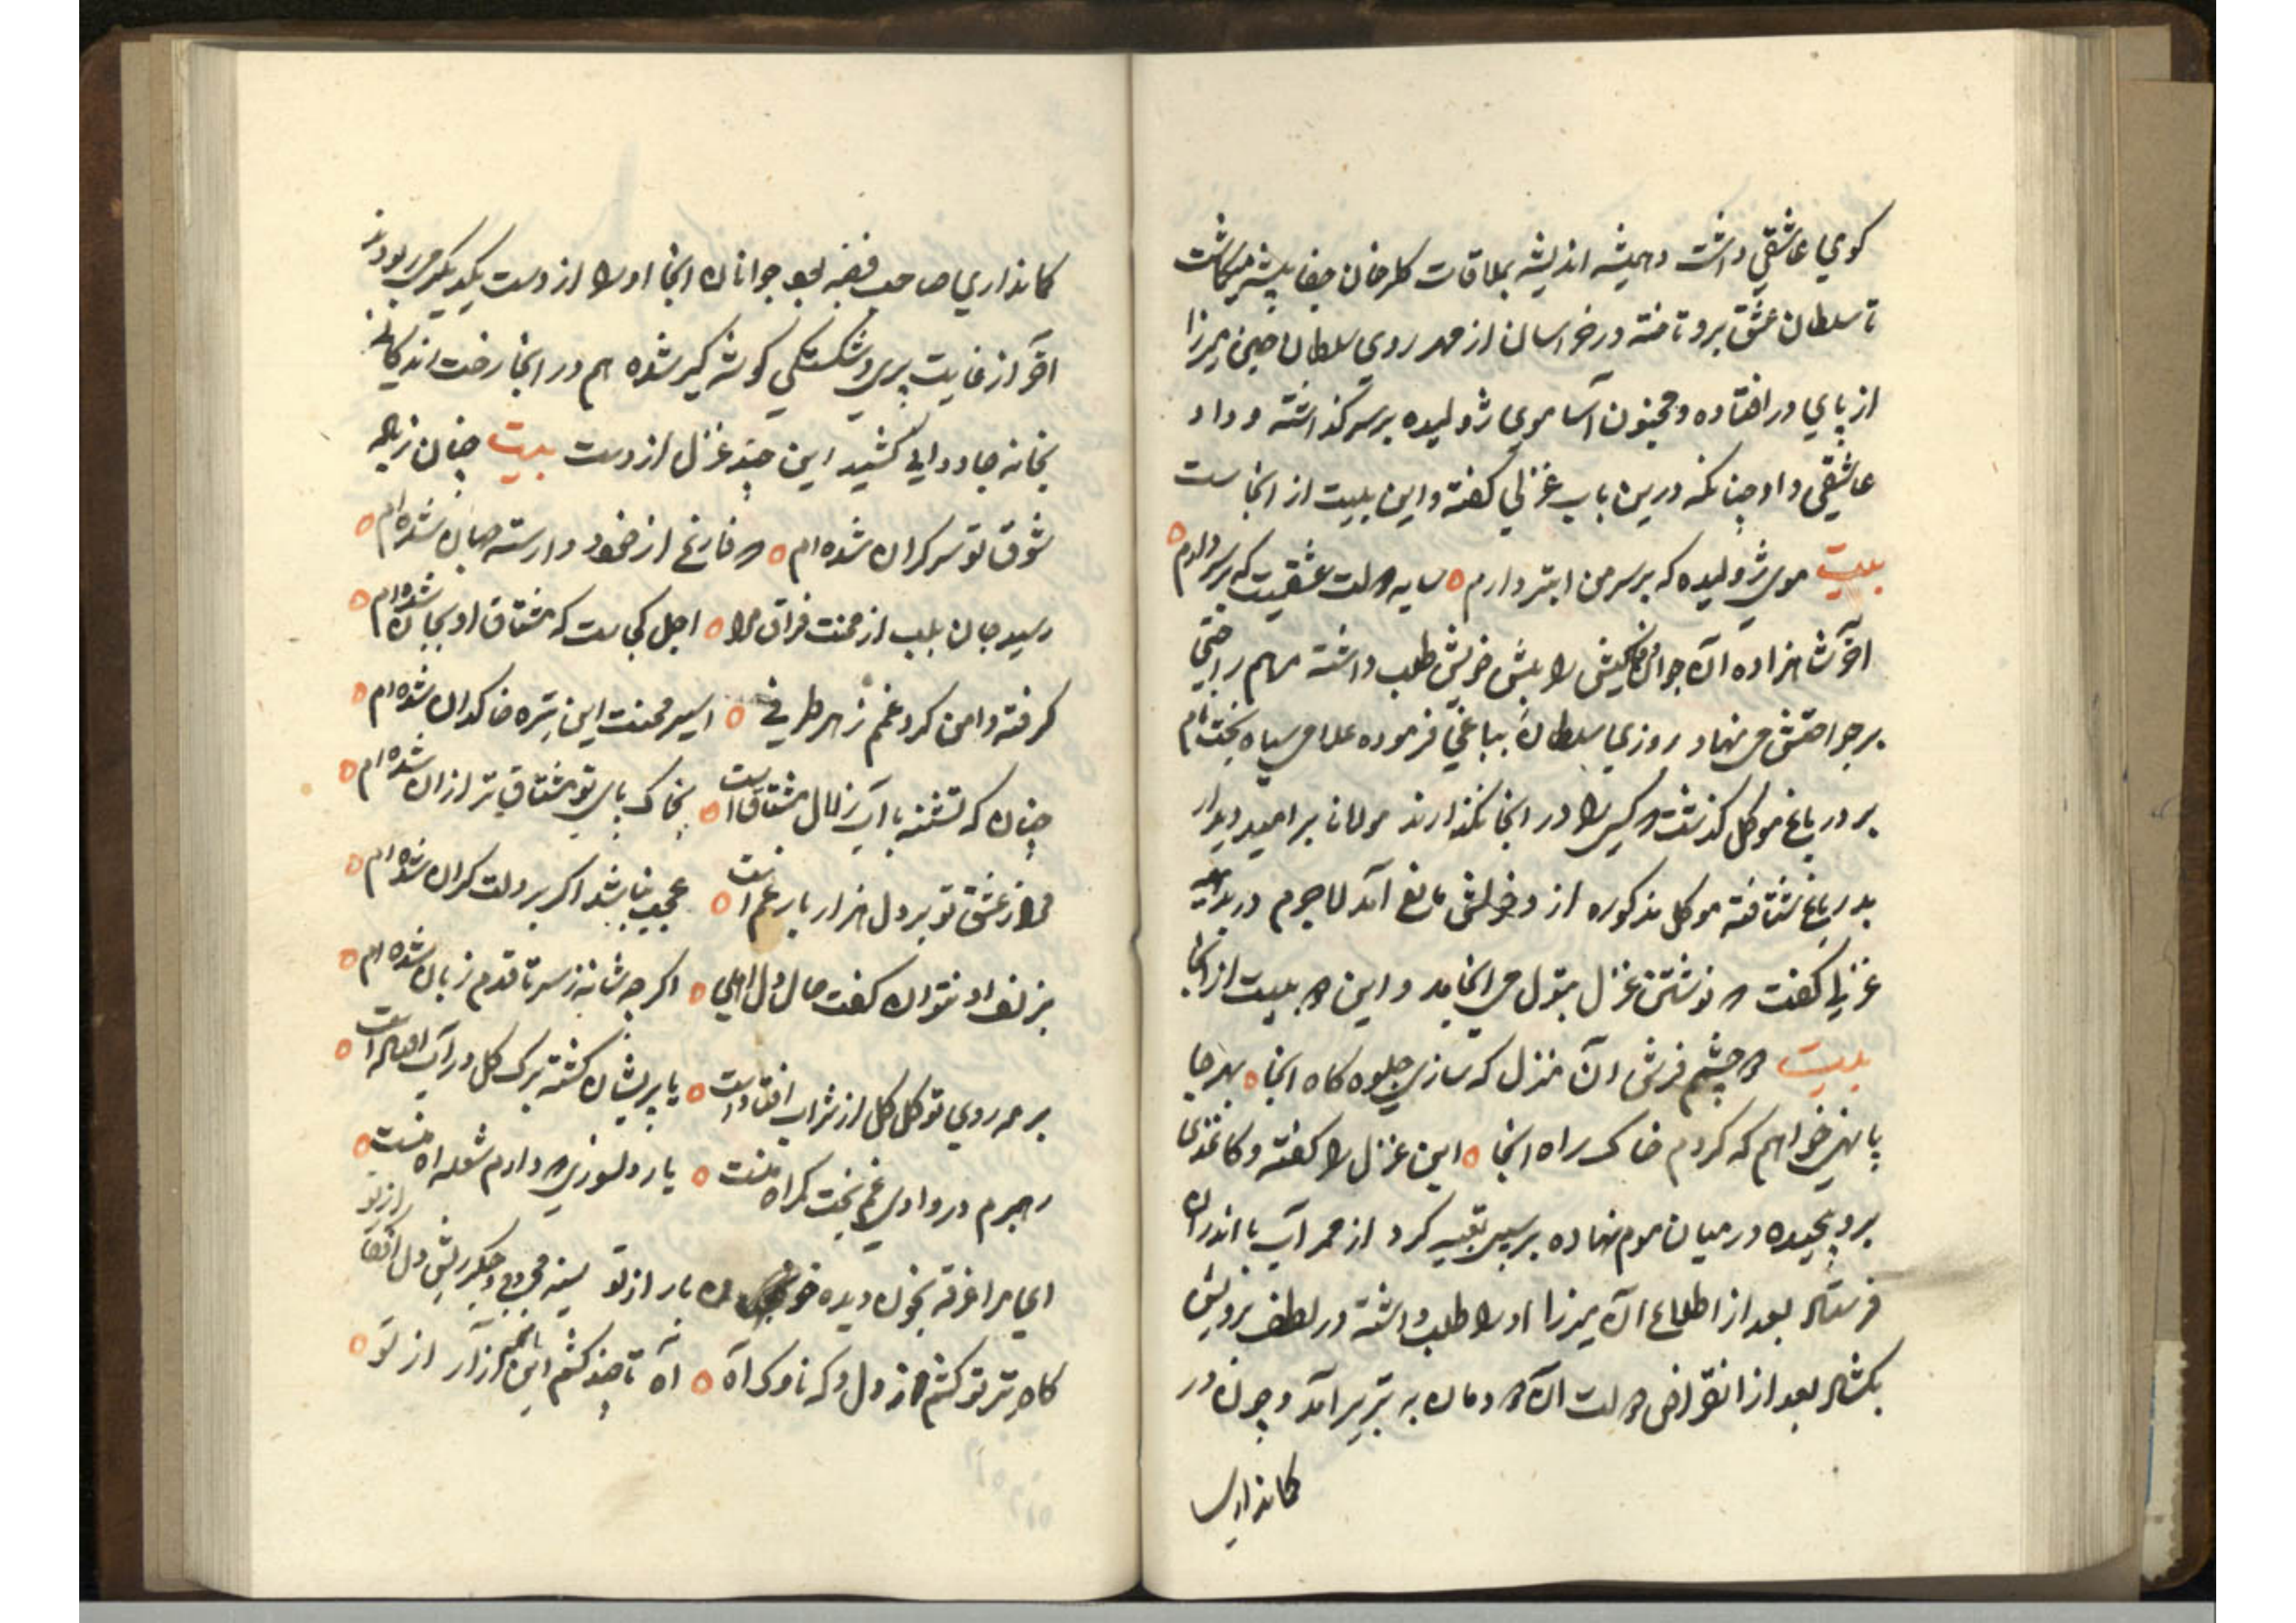 کوي عاشقي داشت و همیشه اندیشه بملاقات کلرخان جفا پیشه میکماشت
تا سلطان عشق برو تاخته در خراسان از مهر روی سلطان حسین میرزا
از پاي در افتاده و مجنون آسا موی ژولیده بر سر کذاشته و داد
عاشقي داد چنانکه درین باب غزلي کفته و این بیت از انجاست
بیت موی ژولیده که بر سر من ابتر دارم سایه دولت عشقیست که بر سر دارم
آخر شاهزاده آن جوان را پیش خویش طلب داشته مرهم راحتي
بر جراحتش می نهاد روزی سلطان بباغي فرموده غلامی سیاه بخت نام
بر در باغ موکل کذشت و کسی را در انجا نکذارند مولانا بر امید دیدار
بدر باغ شتافته موکل مذکوره از دخولش مانع آمد لاجرم در بدیهه
غزلي کفت و نوشتن غزل بتول می انجامد و این دو بیت از انجا
بیت دو چشم فرش آن منزل که سازی جلوه کاه انجا بهر جا
پا نهی خواهم که کردم خاک راه انجا این غزل را کفته و کاغذی
بر و پیچیده در میان موم نهاده بر سیبی تعبیه کرد از ممر آب با اندران
فرستاد بعد از اطلاع آن میرزا او را طلب داشته در لطف برویش
بکشاد بعد از انقراض دولت آن دودمان به تبریز آمد و چون در
کمانداری
کمانداری صاحب قبضه بود جوانان انجا او را از دست یکدیکر می ربودند
آخر از غایت پیری و شکستکي کوشه کیر شده هم در انجا رخت زندکانی
بخانه جاودانی کشید این چند غزل ازوست بیت چنان زباده
شوق تو سرکران شده ام که فارغ از خود و وارسته جهان شده ام
رسید جان بلب از محنت فراق مرا اجل کجاست که مشتاق او بجان شده ام
کرفته دامن کرد غم ز هر طرفي اسیر محنت این تیره خاکدان شده ام
چنان که تشنه با آب زلال مشتاق است بخاک پای تو مشتاق تر از ان شده ام
مرا ز عشق تو بر دل هزار بار غم است عجب نباشد اکر بر دلت کران شده ام
بزلف او نتوان کفت حال دل اهلي اکرچه شانه ز سر تا قدم زبان شده ام
بر مه روی تو کل کل از شراب افتاده است یا پریشان کشته برک کل در آب افتاده است
رهبرم در وادی غم بخت کمراه منست یار دلسوزی که دارم شعله آه منست
ای مرا غرقه بخون دیده خونبار از تو سینه مجروح و جکر ریش و دل افکار از تو
کاه تیر تو کشم از دل و که ناوک آه آه تا چند کشم این همه آزار از تو